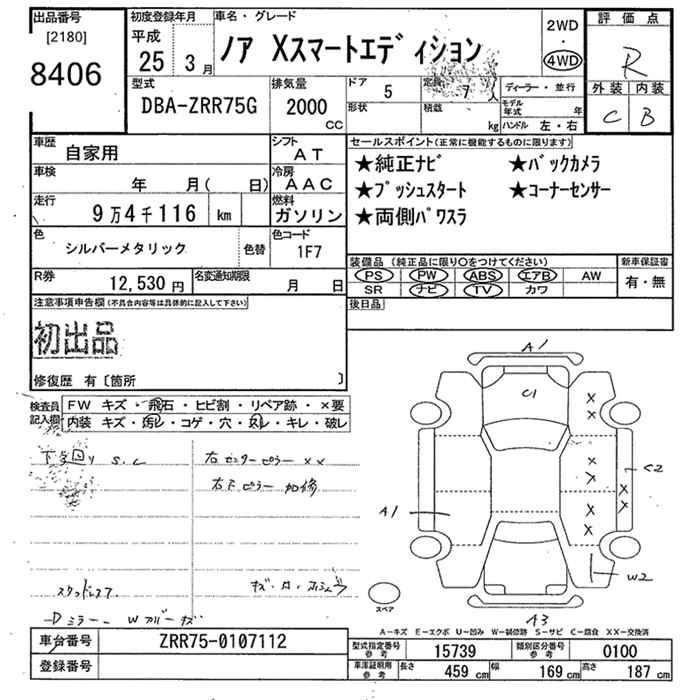 出品番号
[2180]
8406
初度登録年月
平成
25 3月
車名・グレード
ノア Xスマートエディション
2WD
・
4WD
評価点
R
外装 内装
C B
型式
DBA-ZRR75G
排気量
2000
CC
ドア
5
定員
7 人
ディーラー・並行
形状
積載
kg
モデル年式 年
ハンドル 左・右
車歴
自家用
シフト
AT
車検
年 月( 日)
冷房
AAC
走行
9万4千116 km
燃料
ガソリン
色
シルバーメタリック
色替
色コード
1F7
R券
12,530 円
名変通知期限
月 日
セールスポイント(正常に機能するものに限ります)
★純正ナビ ★バックカメラ
★プッシュスタート ★コーナーセンサー
★両側パワスラ
装備品 (純正品に限り〇をつけてください)
PS PW ABS エアB AW
SR ナビ TV カワ
新車保証書
有・無
後日品
注意事項申告欄(不具合内容等は具体的に記入して下さい)
初出品
修復歴 有〔箇所 〕
検査員記入欄
FW キズ・飛石・ヒビ割・リペア跡・×要
内装 キズ・汚レ・コゲ・穴・スレ・キレ・破レ
下廻り S.C
右センターピラー ××
右Fピラー 加修
スタッドレス
Dミラー Wカバーキズ
A1
C1
A1
C2
W2
A3
スペア
A−キズ E−エクボ U−凹み W−補修跡 S−サビ C−腐食 ××−交換済
車台番号
ZRR75-0107112
登録番号
型式指定番号 参考
15739
類別区分番号 参考
0100
車庫証明用 参考
長さ 459 cm 幅 169 cm 高さ 187 cm